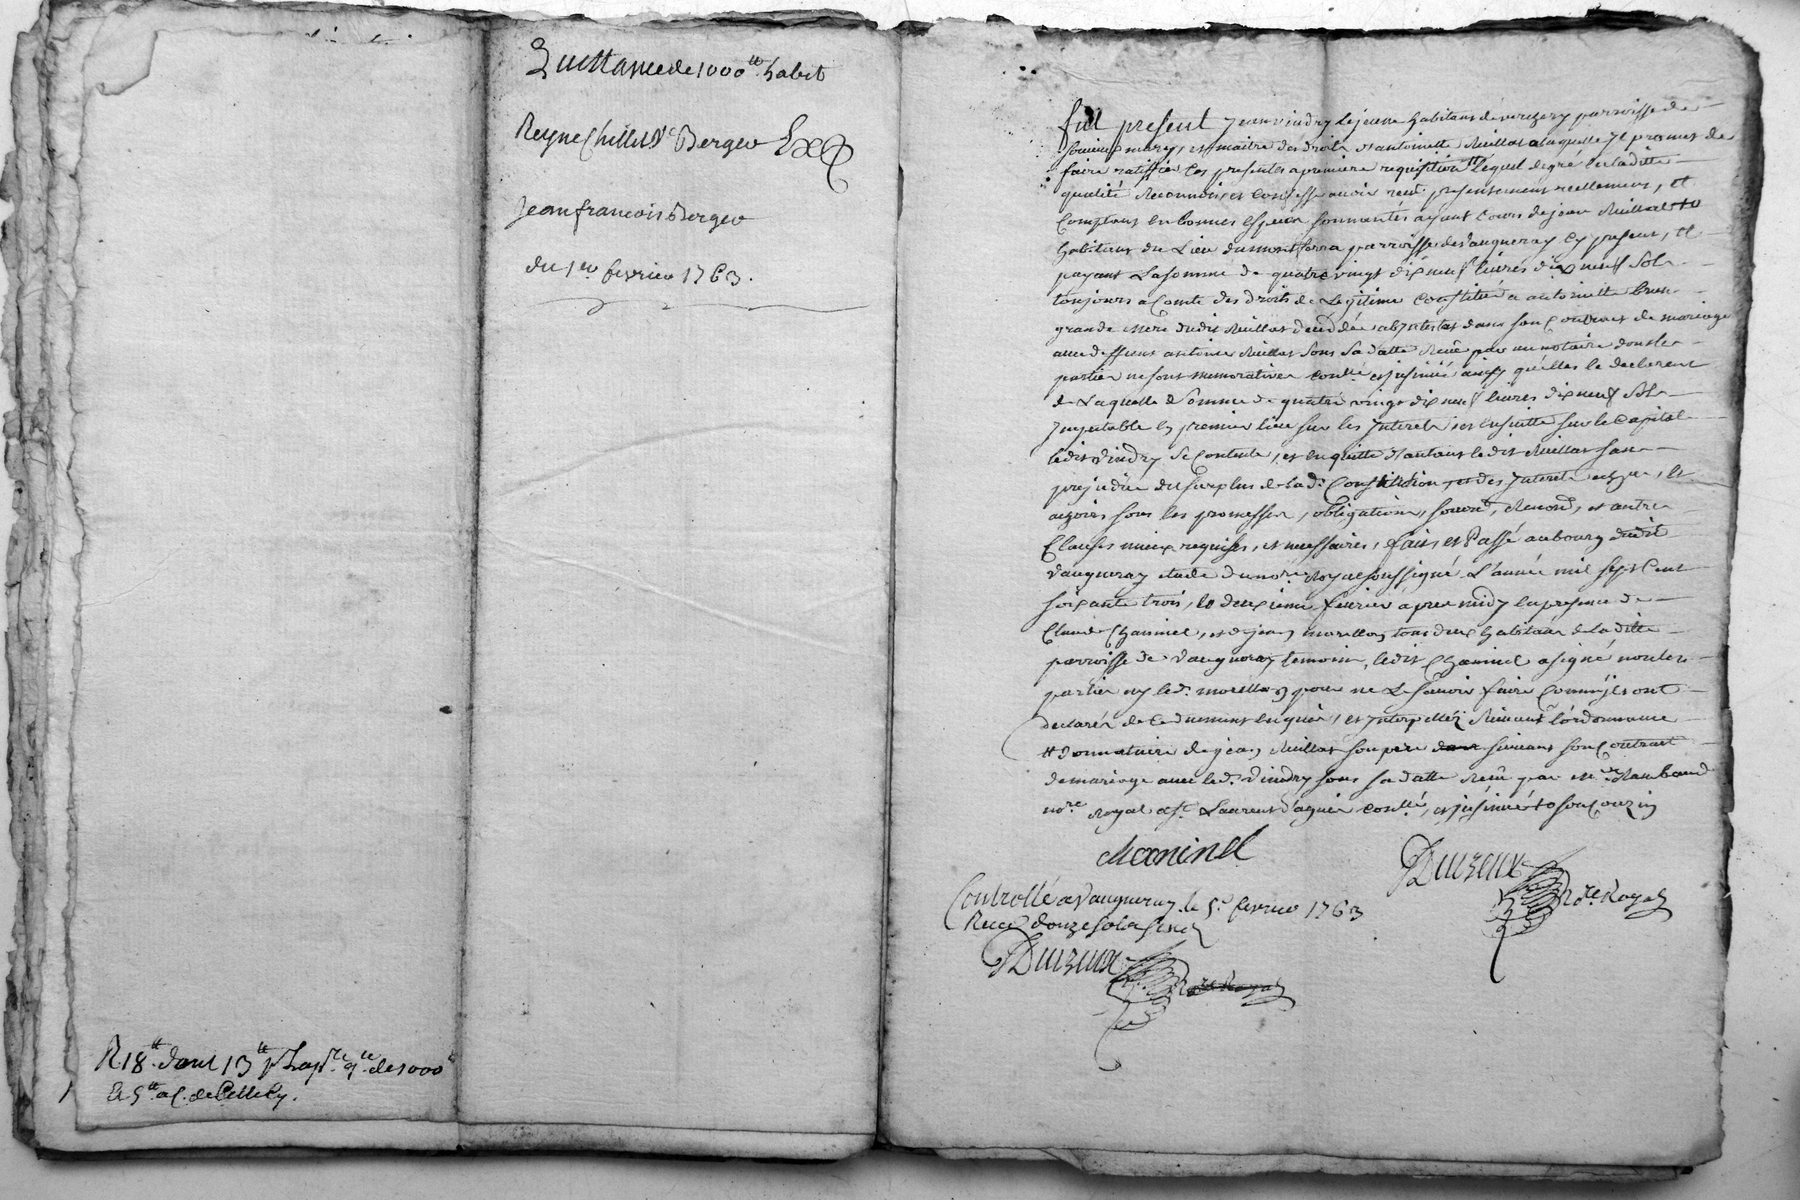 Quittance de 1000 ₶ habit
Reyne Chillet Ve Berger Ex
Jean francois Berger
du 1er fevrier 1763.
R 18 ₶ dont 13 ₶ de 1000 ₶
Et 5 ₶ a
fut present Jean vindry le jeune habitant de parroisse de
mary, et maitre des droits d'antoinette Reillat a laquelle Jl promet de
faire ratiffier les presentes a premiere requisition lequel de gré en laditte
qualité Reconnoit et confesse avoir receu presentement reellement, et
comptant en bonnes especes sonnantes ayant cours de jean Reillat
habitant du Lieu du montferra parroisse de vaugneray Cy present, et
payant La somme de quatre vingt dix neuf livres dix neuf sols
toujours a Comte des droits de Legitime constitué a antoinette
grande mere dudit Reillat decedée abjntestat dans son Contract de mariage
avec deffunt antoine Reillat sous sa datte Receu par un notaire dont les
parties ne sont memoratives conllé et jnsinué ainsy qu'elles le declarent
de Laquelle somme de quatre vingt dix neuf livres dix neuf sols
Jmputable en premier lieu sur les Jnterets et ensuitte sur le capital
ledit vindry se contente, et en quitte d'autant ledit Reillat sans
prejudice du surplus de lad. constitution, et des Jnterets
sous les promesses, obligations, soumd, Renond, et autres
Clauses mieux requises, et necessaires, fait, et Passé au bourg dudit
vaugneray etude du nore Royal soussigné L'année mil sept Cent
soixante trois, le deuxieme fevrier apres midy en presence de
Claude Chaninel, et de jean morellon tous deux habitans de laditte
parroisse de vaugneray temoins, ledit Chaninel a signé non les
parties ny led. morellon pour ne Le savoir faire Comme jls ont
declaré de Ce duement enquis, et Jnterpellés suivant l'ordonnance
# Donnataire de jean Reillat son pere suivant son Contract
de mariage avec led. vindry sous sa datte Receu par Me Rambaud
nore Royal a St Laurent d'agnie conllé, et jnsinué
Chaninel
Duizeux
Nore Royal
Controllé a Vaugneray le 5e fevrier 1763
Receu douze sols
Duizeux
Nore Royal